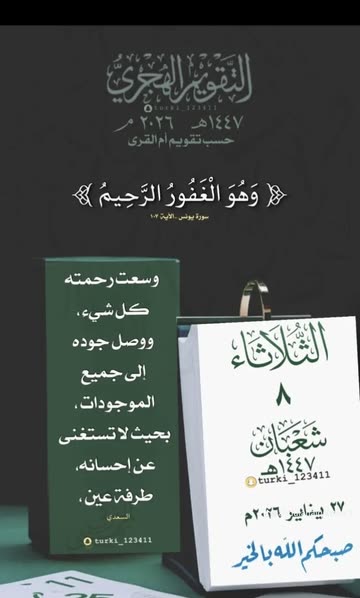 التقويم الهجري
turki_123411
١٤٤٧هـ ٢٠٢٦م
حسب تقويم أم القرى
﴿ وَهُوَ الْغَفُورُ الرَّحِيمُ ﴾
سورة يونس . الآية ١٠٧
وسعت رحمته
كل شيء،
ووصل جوده
إلى جميع
الموجودات،
بحيث لا تستغنى
عن إحسانه،
طرفة عين،
السعدي
turki_123411
الثُّلَاثَاء
٨
شَعْبَان
١٤٤٧هـ
turki_123411
٢٧ يناير ٢٠٢٦م
صبحكم الله بالخير
11